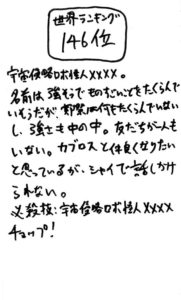 世界ランキング
146位
宇宙侵略ロボ怪人XXXX。
名前は強そうでものすごいことをたくらんで
いそうだが、野望は何もたくらんでいない
し、強さも中の中。友だちが一人も
いない。カブロスと仲良くなりたい
と思っているが、シャイで話しかけ
られない。
必殺技:宇宙侵略ロボ怪人XXXX
チョップ!